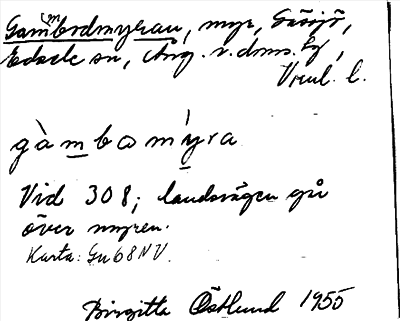 Gambodmyran, myr, Gåsjö,
Edsele sn, Ång. v. dms. hd,
Vreul. l.
gàmbomýra
Vid 308; landsvägen går
över myren.
Karta: Gu68NV.
Birgitta Östlund 1955